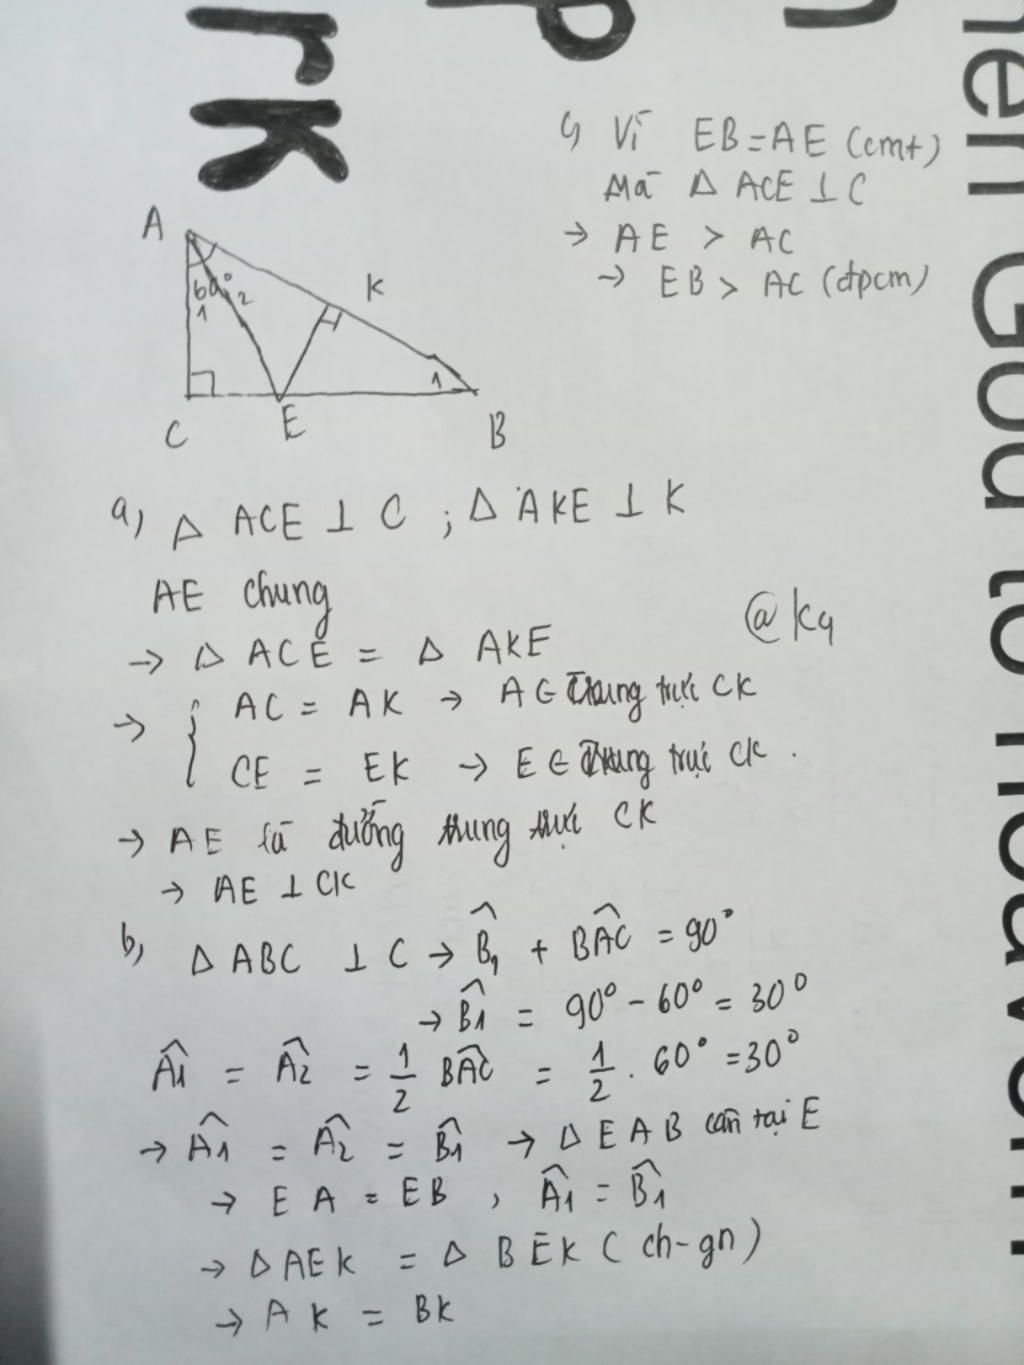 c, Vì EB = AE (cmt)
Mà Δ ACE ⊥ C
→ AE > AC
→ EB > AC (đpcm)
A
60°
2
1
K
1
C
E
B
a, Δ ACE ⊥ C ; Δ AKE ⊥ K
AE chung
→ Δ ACE = Δ AKE
@kq
→ { AC = AK → A ∈ trung trực CK
CE = EK → E ∈ trung trực CK .
→ AE là đường trung trực CK
→ AE ⊥ CK
b, Δ ABC ⊥ C → B̂₁ + BÂC = 90°
→ B̂₁ = 90° - 60° = 30°
Â₁ = Â₂ = 1/2 BÂC = 1/2 . 60° = 30°
→ Â₁ = Â₂ = B̂₁ → Δ EAB cân tại E
→ EA = EB , Â₁ = B̂₁
→ Δ AEK = Δ BEK (ch-gn)
→ AK = BK